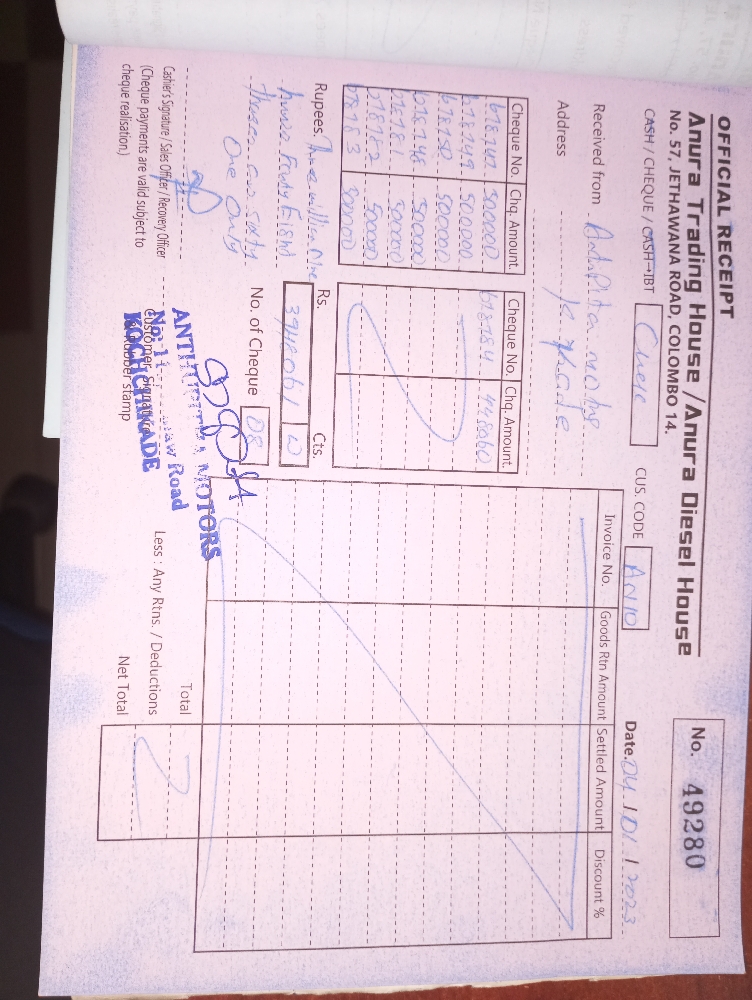 OFFICIAL RECEIPT
Anura Trading House /Anura Diesel House
No. 57, JETHAWANA ROAD, COLOMBO 14.
No. 49280
CASH / CHEQUE / CASH-IBT
CUS. CODE AN10
Date. 04 / 01 / 2023
Received from
Address
Cheque No. Chq. Amount.
500000
678749 500000
678750 500000
678748 500000
678781 500000
678782 500000
678783 500000
Cheque No. Chq. Amount.
678784 448060
Invoice No. Goods Rtn Amount Settled Amount Discount %
Rupees. Three million Nine
Hundred Fourty Eight
Thousand Sixty
One Only
Rs. Cts.
3948061
No. of Cheque 08
Total
Less : Any Rtns. / Deductions
Net Total
Cashier's Signature / Sales Officer / Recovery Officer
(Cheque payments are valid subject to
cheque realisation.)
Customer Signature
Rubber stamp
MOTORS
No. 11 Road
KOCHCHIKADE